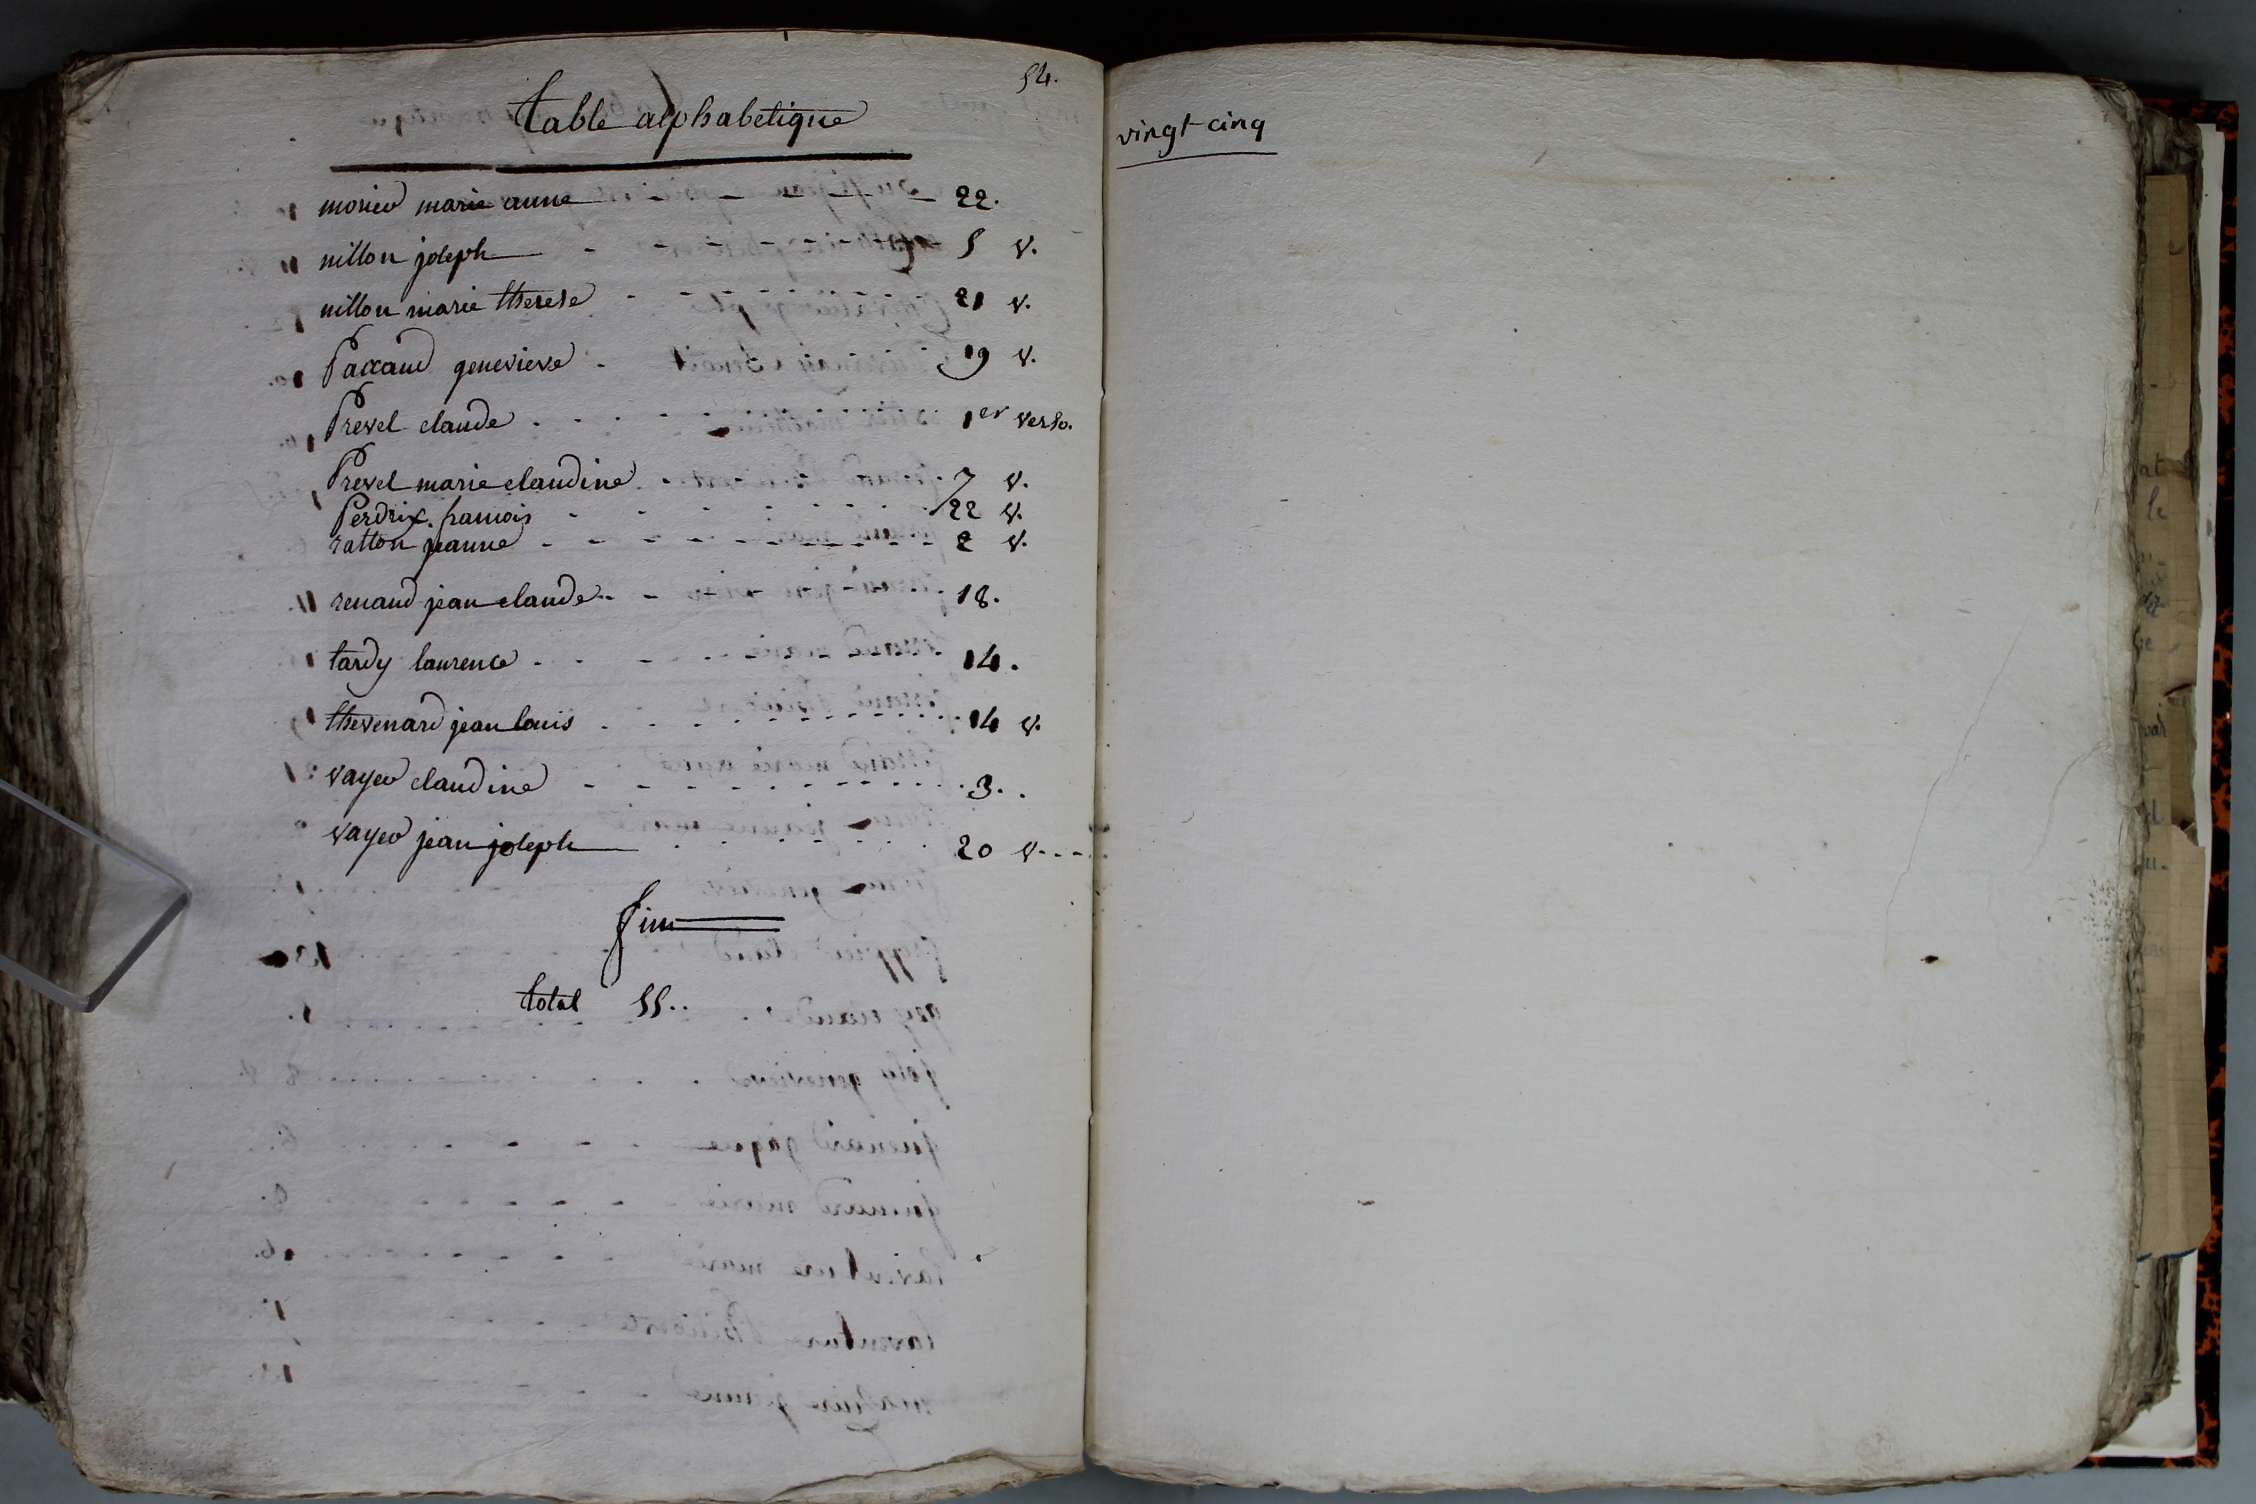 54.
table alphabetique
morier marie anne 22.
nillon joseph 5 v.
nillon marie therese 21 v.
Paccaud genevieve 19 v.
Prevel claude 1er verso.
Prevel marie claudine 7 v.
Perdrix francois 22 v.
ratton jeanne 2 v.
renaud jean claude 18.
tardy laurence 14.
thevenard jean louis 14 v.
vayer claudine 3.
vayer jean joseph 20 v.
fin
total 55.
vingt cinq